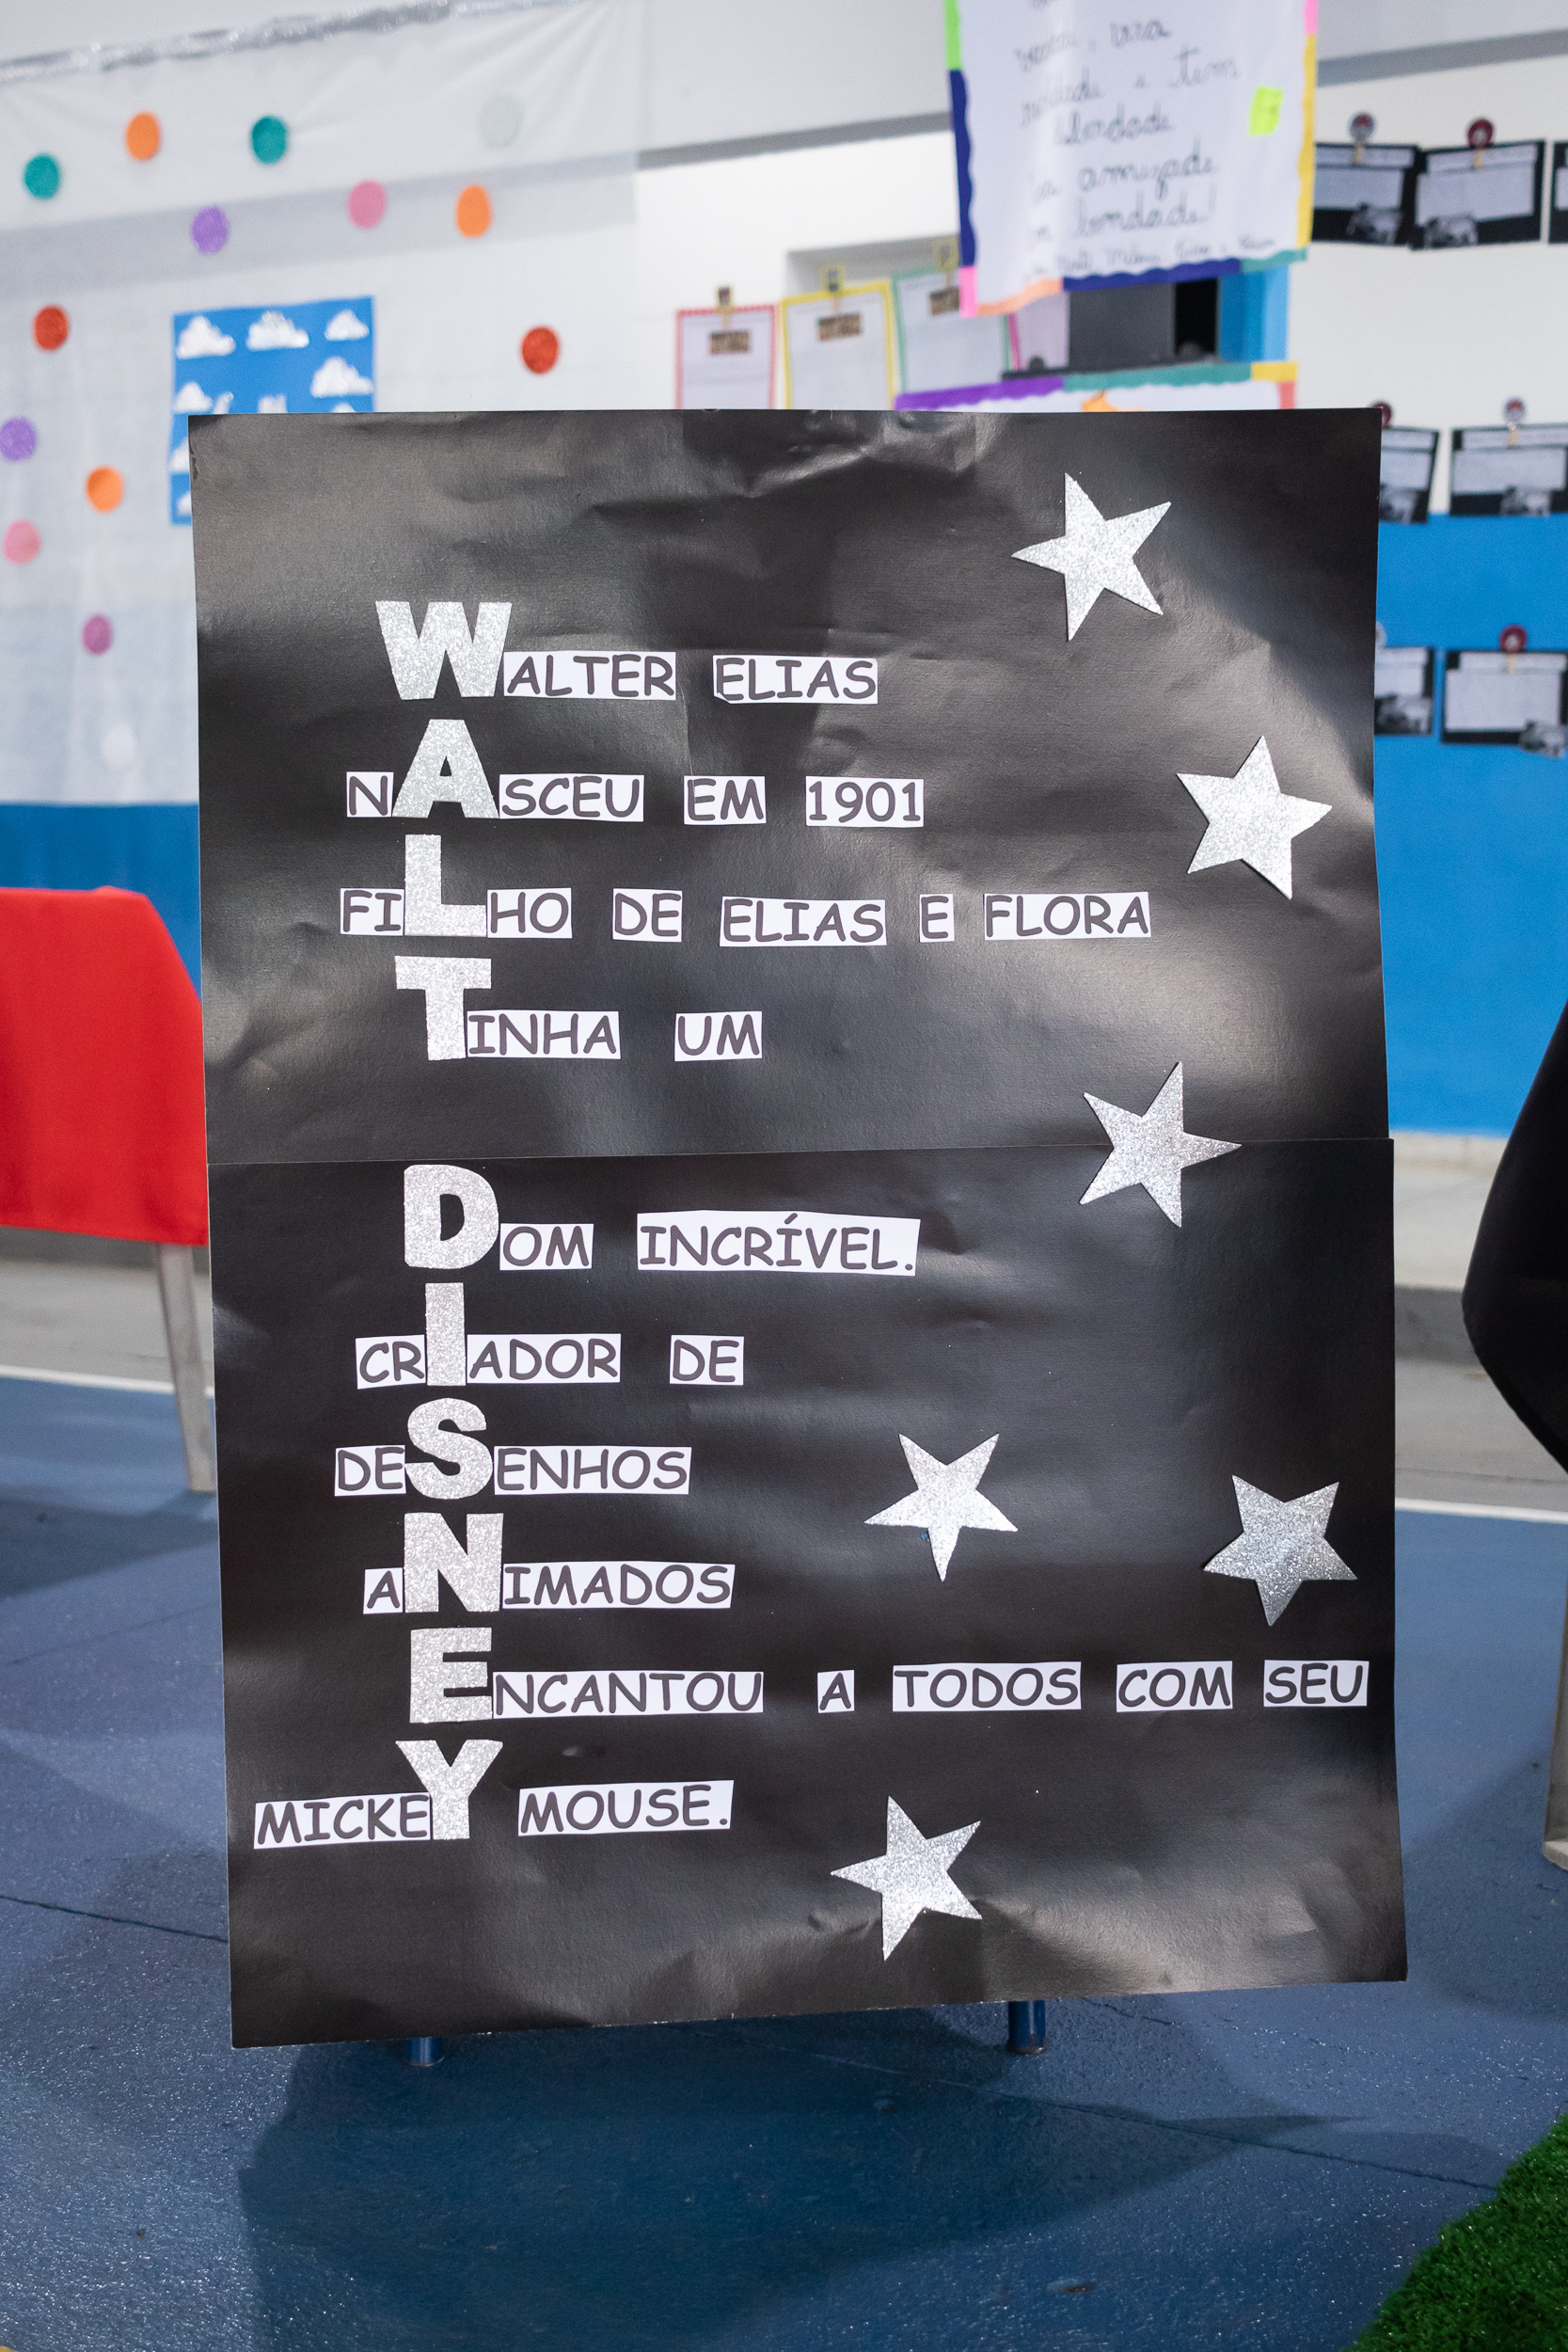 vida, uma
e tem
liberdade
a amizade
bondade!
WALTER ELIAS
NASCEU EM 1901
FILHO DE ELIAS E FLORA
TINHA UM
DOM INCRÍVEL.
CRIADOR DE
DESENHOS
ANIMADOS
ENCANTOU A TODOS COM SEU
MICKEY MOUSE.